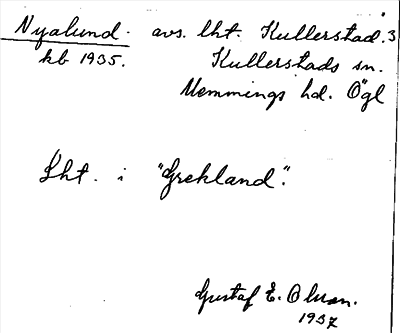 Nyalund. avs. lht. Kullerstad.3
kb 1935. Kullerstads sn.
Memmings hd. Ögl
Lht. i "Grekland".
Gustaf E. Olsson.
1937